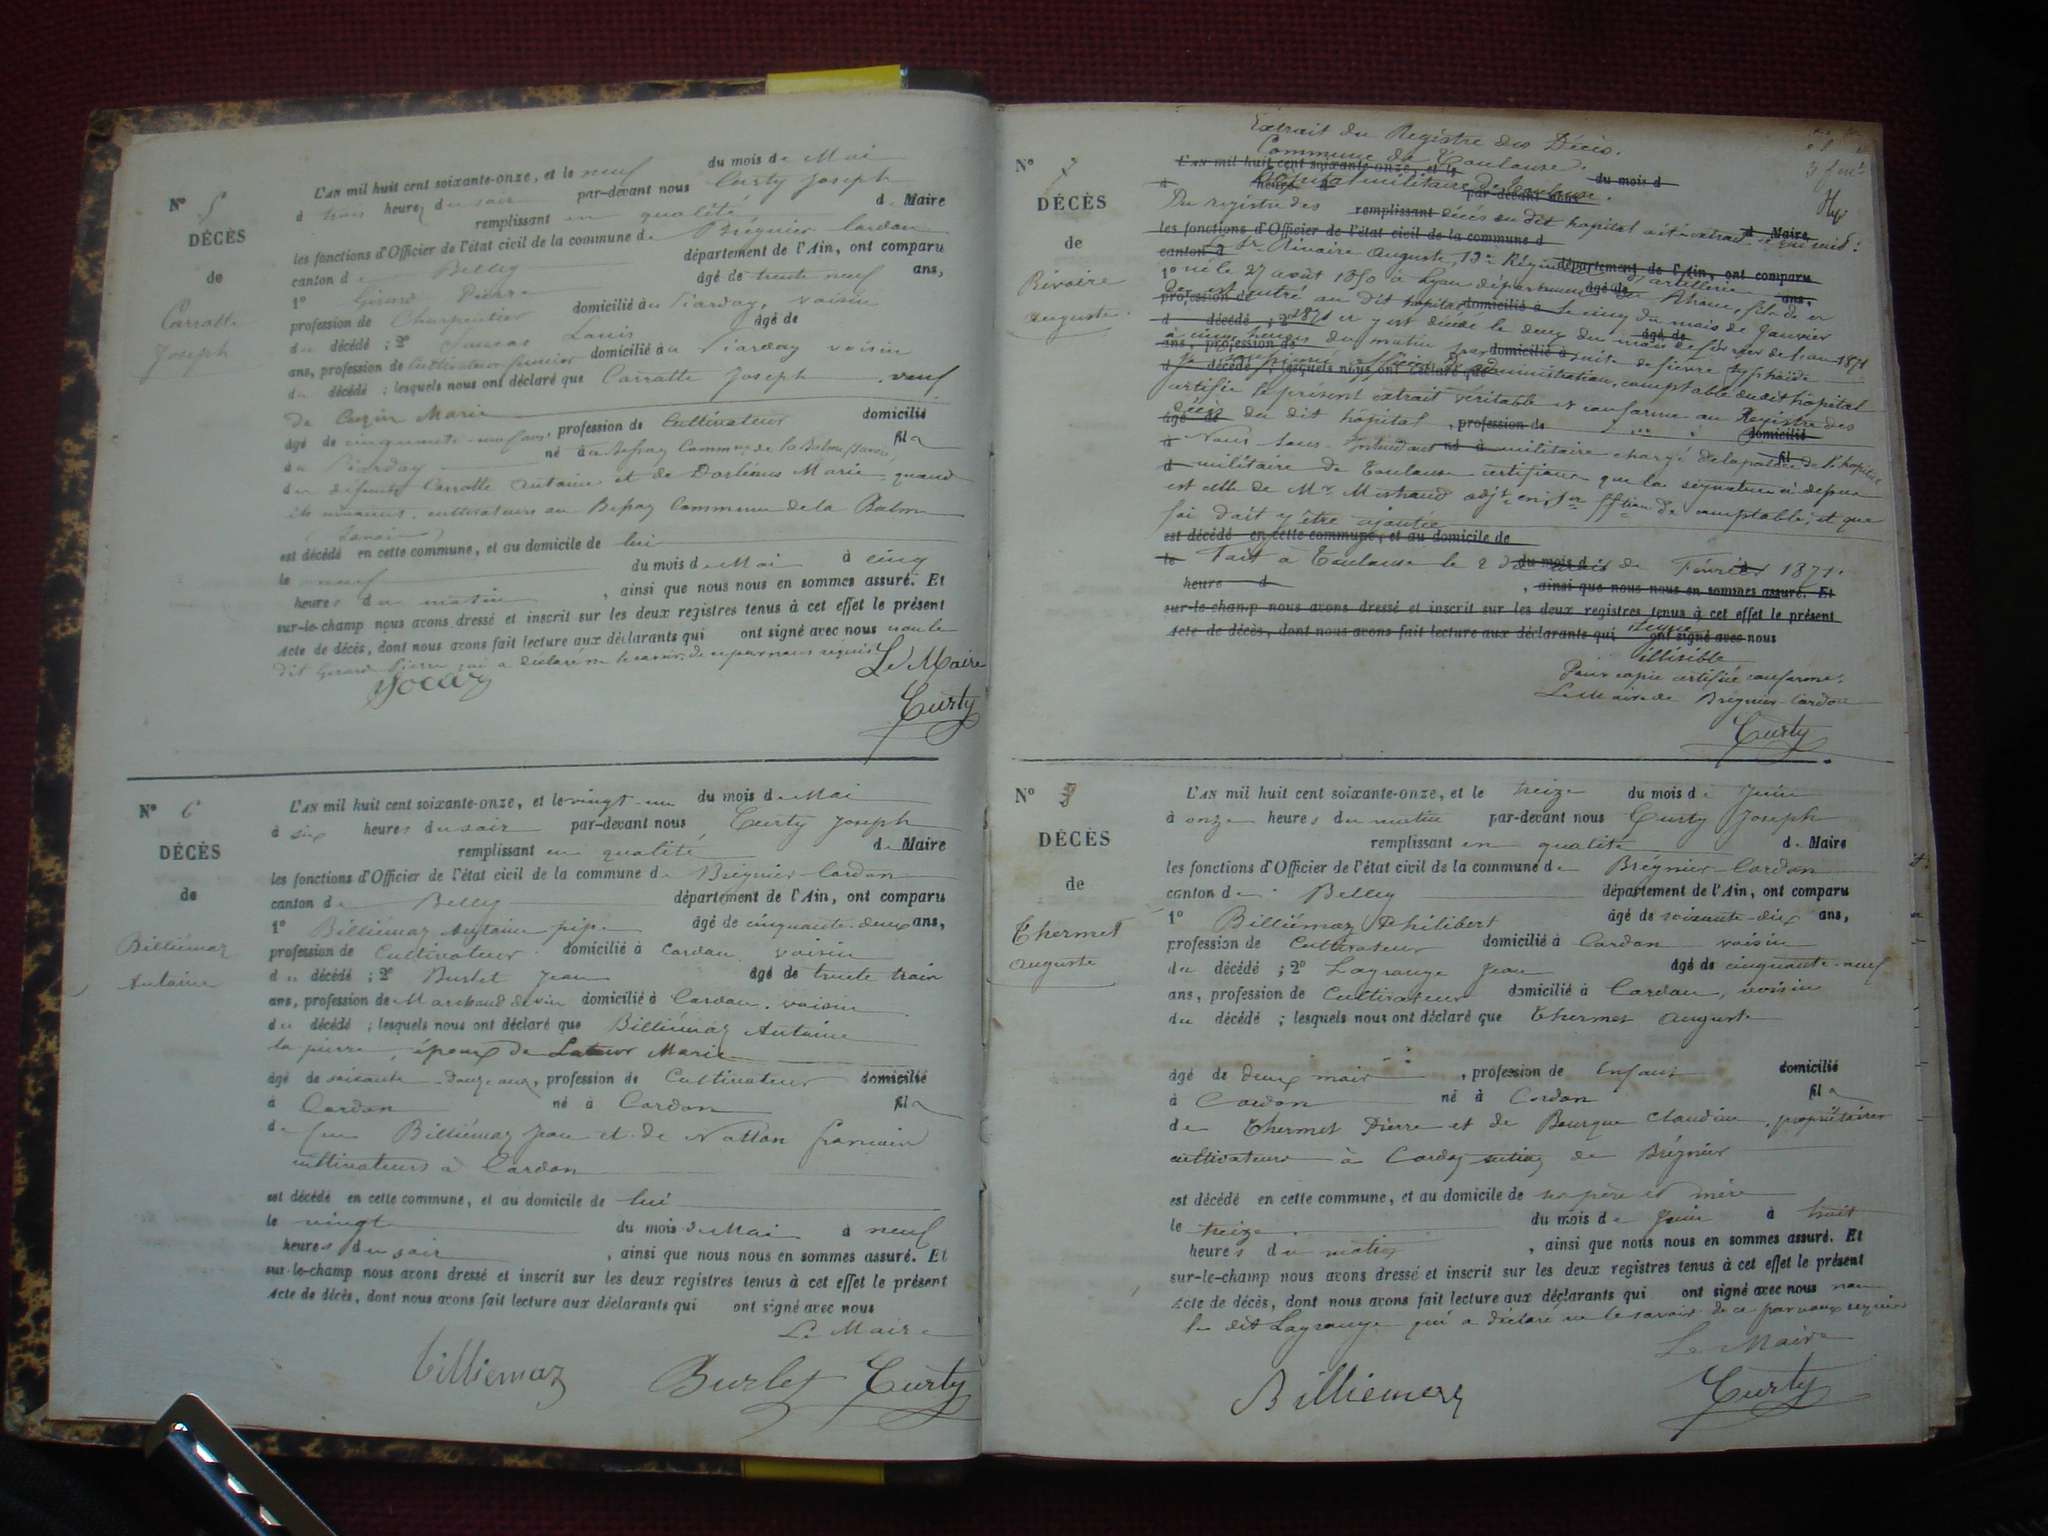 N° 5
DÉCÈS
de
Carratte
Joseph
L'AN mil huit cent soixante-onze, et le neuf du mois de Mai
à trois heures du soir par-devant nous Curty Joseph
remplissant en qualité de Maire
les fonctions d'Officier de l'état civil de la commune de Brégnier Cordon
canton de Belley département de l'Ain, ont comparu
1° Girard Pierre âgé de trente neuf ans,
profession de Charpentier domicilié au Piarday, voisin
du décédé ; 2° Louis âgé de
ans, profession de Cultivateur domicilié au Piarday voisin
du décédé ; lesquels nous ont déclaré que Carratte Joseph, veuf
de Cuzin Marie
âgé de cinquante-neuf ans, profession de Cultivateur domicilié
au Piarday né à Commune de la Balme (Savoie) fils
des défunts Carratte Antoine et de Marie, quand
ils vivaient, cultivateurs au Commune de la Balme
(Savoie)
est décédé en cette commune, et au domicile de lui
le neuf du mois de Mai à cinq
heures du matin, ainsi que nous nous en sommes assuré. Et
sur-le-champ nous avons dressé et inscrit sur les deux registres tenus à cet effet le présent
Acte de décès, dont nous avons fait lecture aux déclarants qui ont signé avec nous non le
dit Girard Pierre qui a déclaré ne le savoir, de ce par nous requis
Le Maire
Curty
N° 6
DÉCÈS
de
Billiémaz
Antoine
L'AN mil huit cent soixante-onze, et le vingt-un du mois de Mai
à six heures du soir par-devant nous Curty Joseph
remplissant en qualité de Maire
les fonctions d'Officier de l'état civil de la commune de Brégnier-Cordon
canton de Belley département de l'Ain, ont comparu
1° Billiémaz Antoine âgé de cinquante-deux ans,
profession de Cultivateur domicilié à Cordon, voisin
du décédé ; 2° Burlet Jean âgé de trente trois
ans, profession de Marchand de vin domicilié à Cordon, voisin
du décédé ; lesquels nous ont déclaré que Billiémaz Antoine
la pierre, époux de Marie
âgé de soixante-douze ans, profession de Cultivateur domicilié
à Cordon né à Cordon fils
de feu Billiémaz Jean et de
cultivateurs à Cordon
est décédé en cette commune, et au domicile de lui
le vingt du mois de Mai à neuf
heures du soir, ainsi que nous nous en sommes assuré. Et
sur-le-champ nous avons dressé et inscrit sur les deux registres tenus à cet effet le présent
Acte de décès, dont nous avons fait lecture aux déclarants qui ont signé avec nous
Le Maire
billiemaz Burlet Curty
Extrait du Registre des Décès.
Commune de Toulouse.
N° 7
DÉCÈS
de
Rivoire
Auguste
L'AN mil huit cent soixante-onze, et le du mois d
Hôpital militaire de Toulouse.
Du registre des décès du dit hopital a été extrait ce qui suit :
Le Sr Rivoire Auguste, 13e Régiment d'artillerie
né le 27 août 1850 à Lyon département du Rhône, fils de
est entré au dit hopital le cinq du mois de Janvier
1871 et y est décédé le deux du mois de février de l'an 1871
à cinq heures du matin par suite de fièvre typhoïde
Je soussigné officier d'administration, comptable du dit hôpital
certifie le présent extrait véritable et conforme au Registre des
décès du dit hôpital
Nous Sous-Intendant militaire chargé de la police de l'hôpital
militaire de Toulouse certifions que la signature ci-dessus
est celle de Mr. et que
foi doit y être ajoutée
Fait à Toulouse le 2 du mois de Février 1871.
signé
illisible
Pour copie certifiée conforme,
Le Maire de Brégnier-Cordon
Curty
N° 8
DÉCÈS
de
Thermet
Auguste
L'AN mil huit cent soixante-onze, et le treize du mois de Juin
à onze heures du matin par-devant nous Curty Joseph
remplissant en qualité de Maire
les fonctions d'Officier de l'état civil de la commune de Brégnier-Cordon
canton de Belley département de l'Ain, ont comparu
1° Billiémaz Philibert âgé de soixante-dix ans,
profession de Cultivateur domicilié à Cordon voisin
du décédé ; 2° Lagrange Jean âgé de cinquante-neuf
ans, profession de Cultivateur domicilié à Cordon, voisin
du décédé ; lesquels nous ont déclaré que Thermet Auguste
âgé de deux mois, profession de Enfant domicilié
à Cordon né à Cordon fils
de Thermet Pierre et de Bourque Claudine, propriétaires
cultivateurs à Cordon de Brégnier
est décédé en cette commune, et au domicile de ses père et mère
le treize du mois de Juin à huit
heures du matin, ainsi que nous nous en sommes assuré. Et
sur-le-champ nous avons dressé et inscrit sur les deux registres tenus à cet effet le présent
Acte de décès, dont nous avons fait lecture aux déclarants qui ont signé avec nous non
le dit Lagrange qui a déclaré ne le savoir de ce par nous requis
Le Maire
Billiemaz Curty